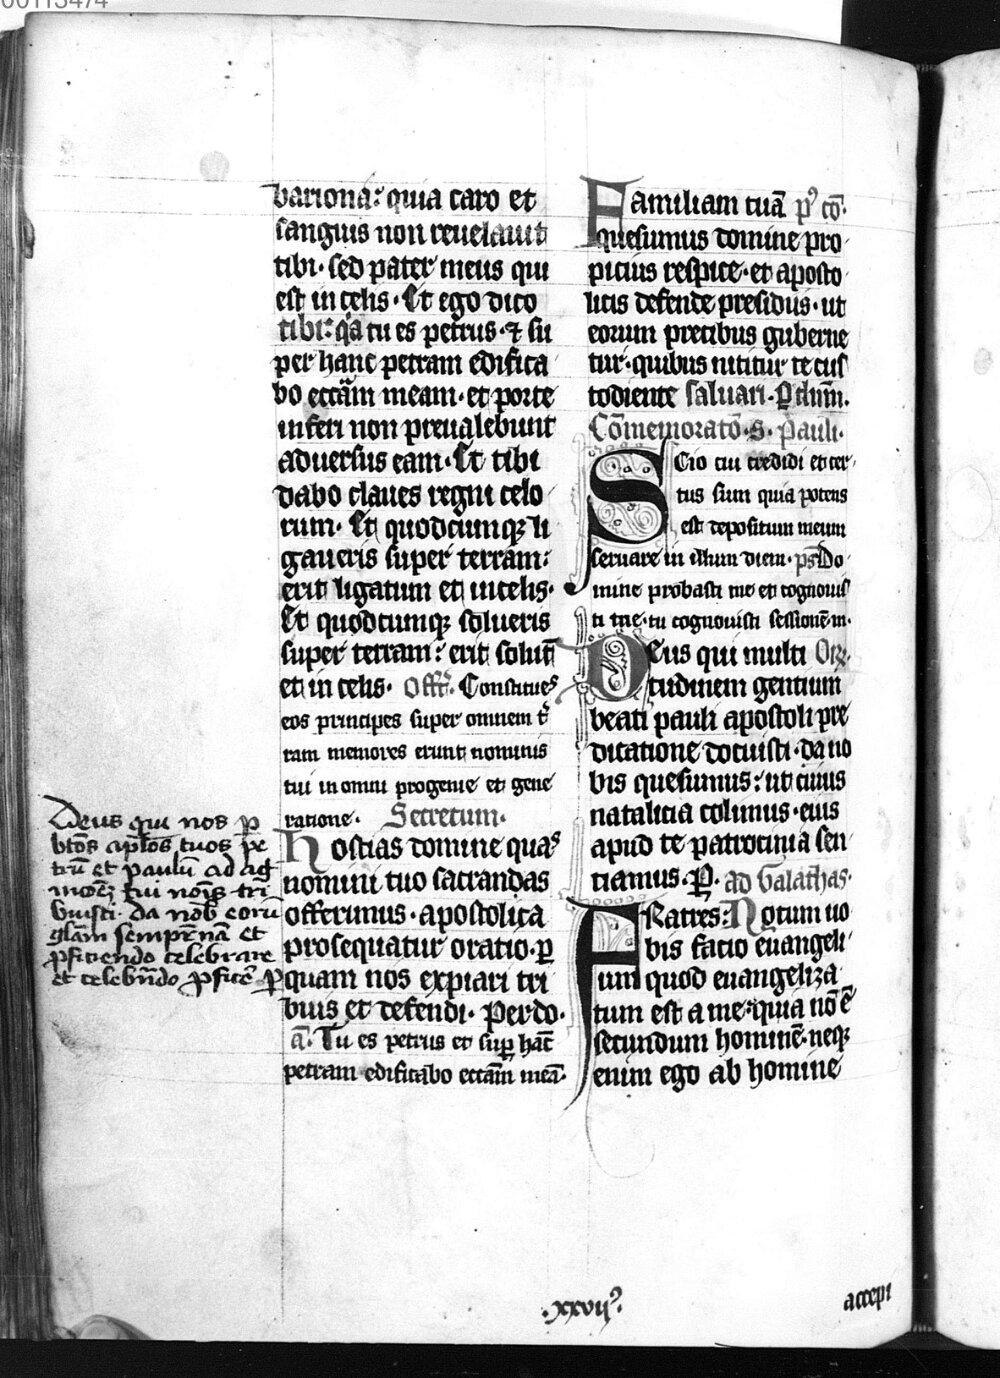 00113474
bariona: quia caro et
sanguis non reuelauit
tibi · sed pater meus qui
est in celis · Et ego dico
tibi: qa tu es petrus · ⁊ su
per hanc petram edifica
bo eccãm meam · et porte
inferi non preualebunt
aduersus eam · Et tibi
dabo claues regni celo
rum · Et quodcumqꝫ li
gaueris super terram:
erit ligatum et in celis ·
Et quodcumqꝫ solueris
super terram: erit solut̃
et in celis · Offr̃. Constitues
eos principes super omnem t̃
ram memores erunt nominis
tui in omni progenie et gene
ratione · Secretum ·
Hostias domine quas
nomini tuo sacrandas
offerimus · apostolica
prosequatur oratio · ꝑ
quam nos expiari tri
buis et defendi · Per do ·
ã. Tu es petrus et suꝑ hãc
petram edificabo eccãm meã ·
Deus qui nos ꝑ
btõs apl̃os tuos pe
trũ et paulũ ad ag
nicõeꝫ tui noĩs tri
buisti · da nob̃ eorũ
gl̃am sempr̃nã et
ꝓficiendo celebrare
et celebrñdo ꝓficẽ ꝑ
Familiam tuã p̃ cõ ·
quesumus domine pro
picius respice · et aposto
licis defende presidiis · ut
eorum precibus guberne
tur · quibus nititur te cus
todiente saluari · ꝑ dñm̃.
Cõmemorato · s · Pauli ·
SCio cui credidi et cer
tus sum quia potens
est depositum meum
seruare in illum diem · ps̃ Do
mine probasti me et cognouis
ti me · tu cognouisti sessionẽ m ·
Deus qui multi Orꝫ ·
tudinem gentium
beati pauli apostoli pre
dicatione docuisti · da no
bis quesumus: ut cuius
natalicia colimus · eius
apud te patrocinia sen
tiamus · ꝑ · ad Galathas ·
FRatres: Notum uo
bis facio euangeli
um quod euangeliza
tum est a me: quia nõ ẽ
secundum hominẽ · neqꝫ
enim ego ab homine
· xxvij° ·
accepi